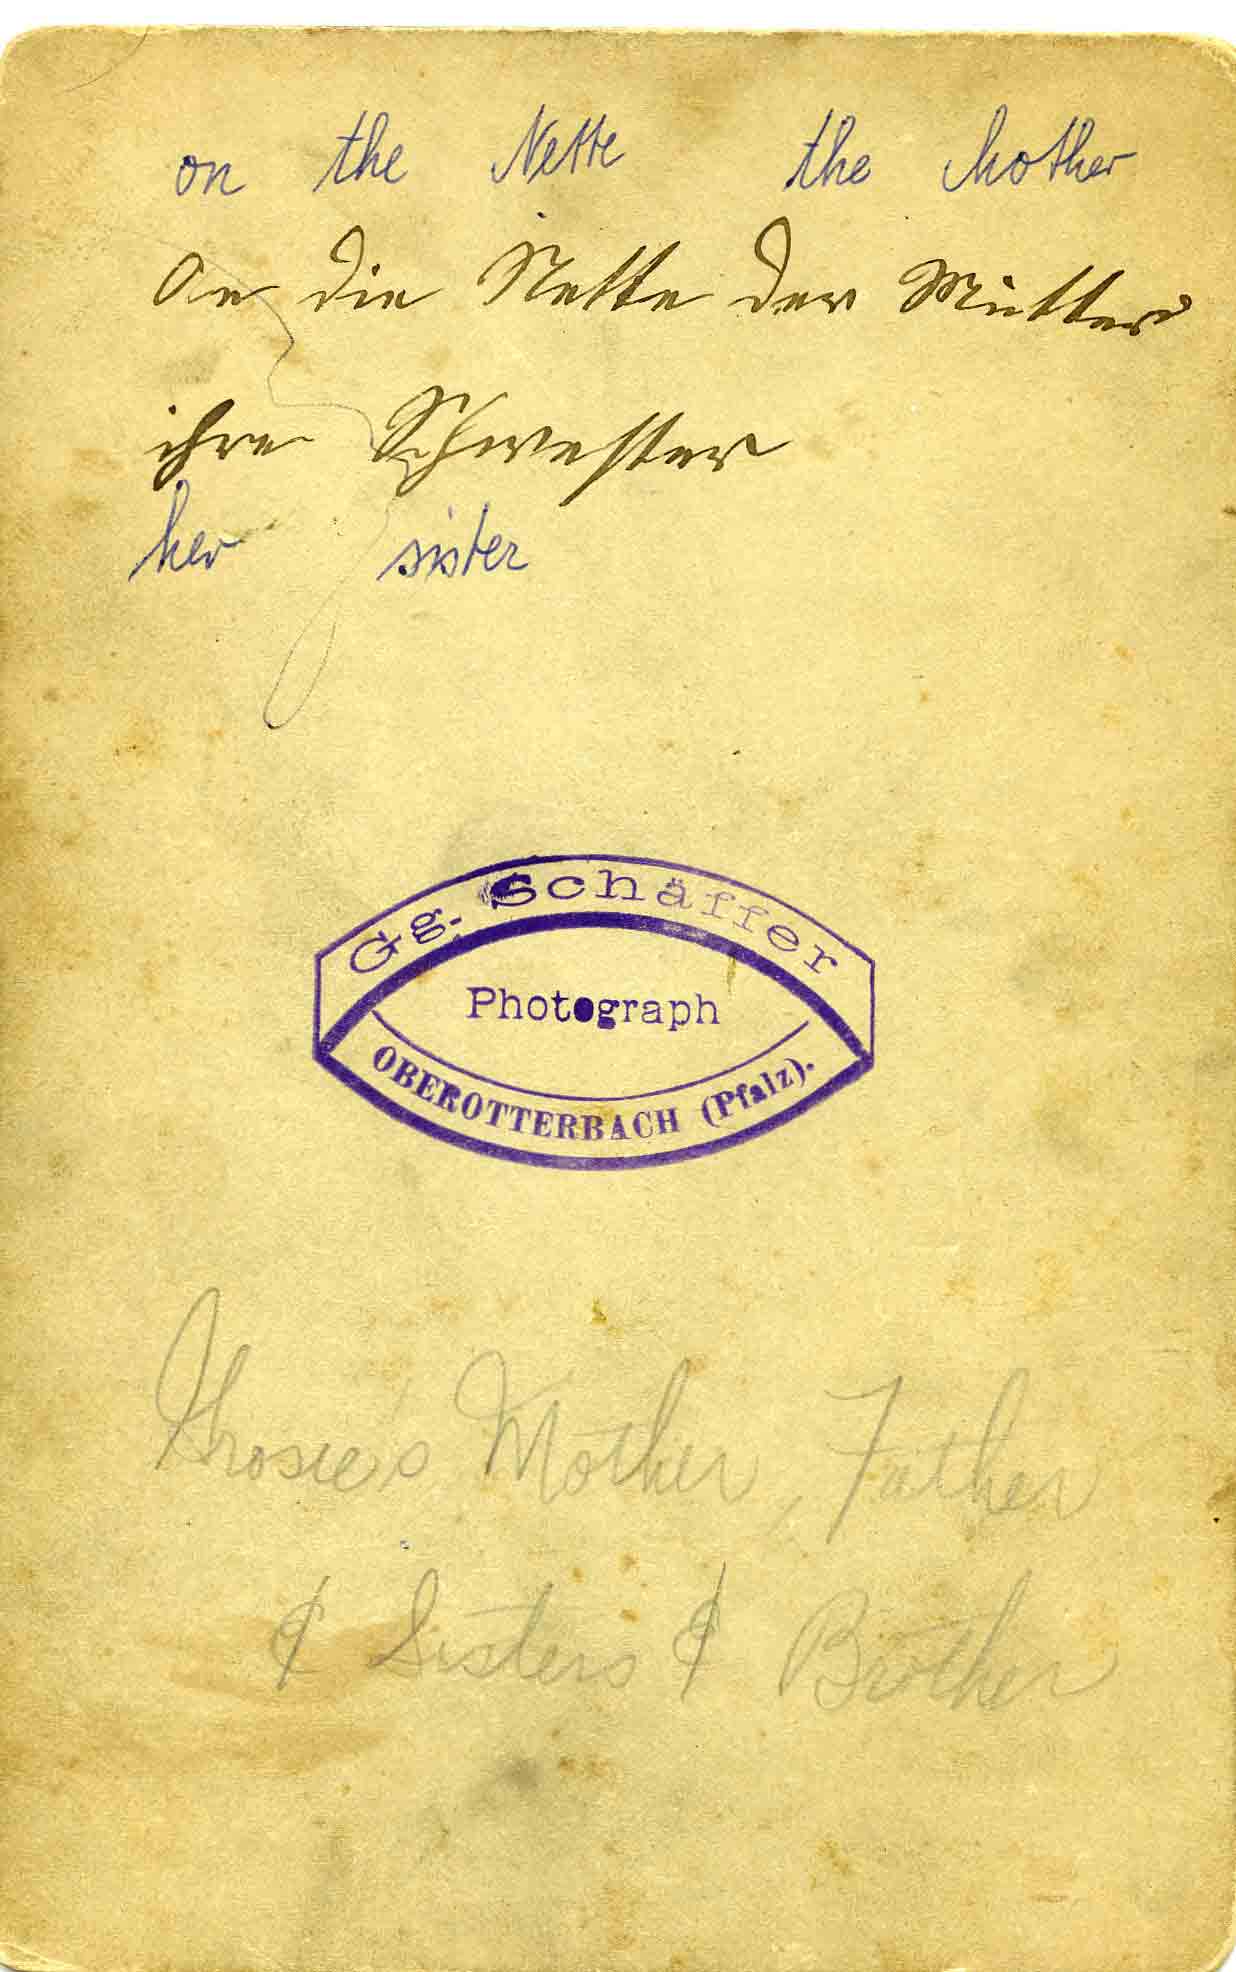 on the Nette the Mother
An die Nette der Mutter
ihre Schwester
her sister
Gg. Schäffer
Photograph
OBEROTTERBACH (Pfalz).
Grosie's Mother, Father
& Sisters & Brother